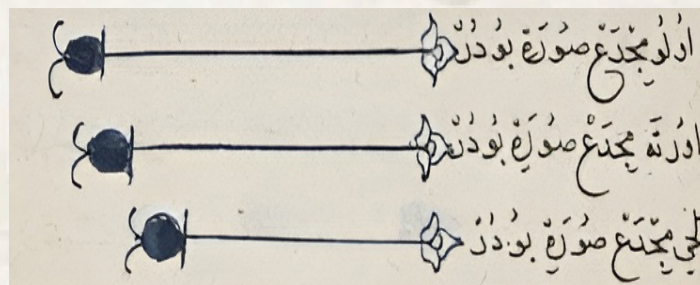 اُولُو مِجْدَعْ صُورَةِ بُودُرْ
اُورْتَه مِجْدَعْ صُورَةِ بُودُرْ
مِجْدَعْ صُورَةِ بُودُرْ